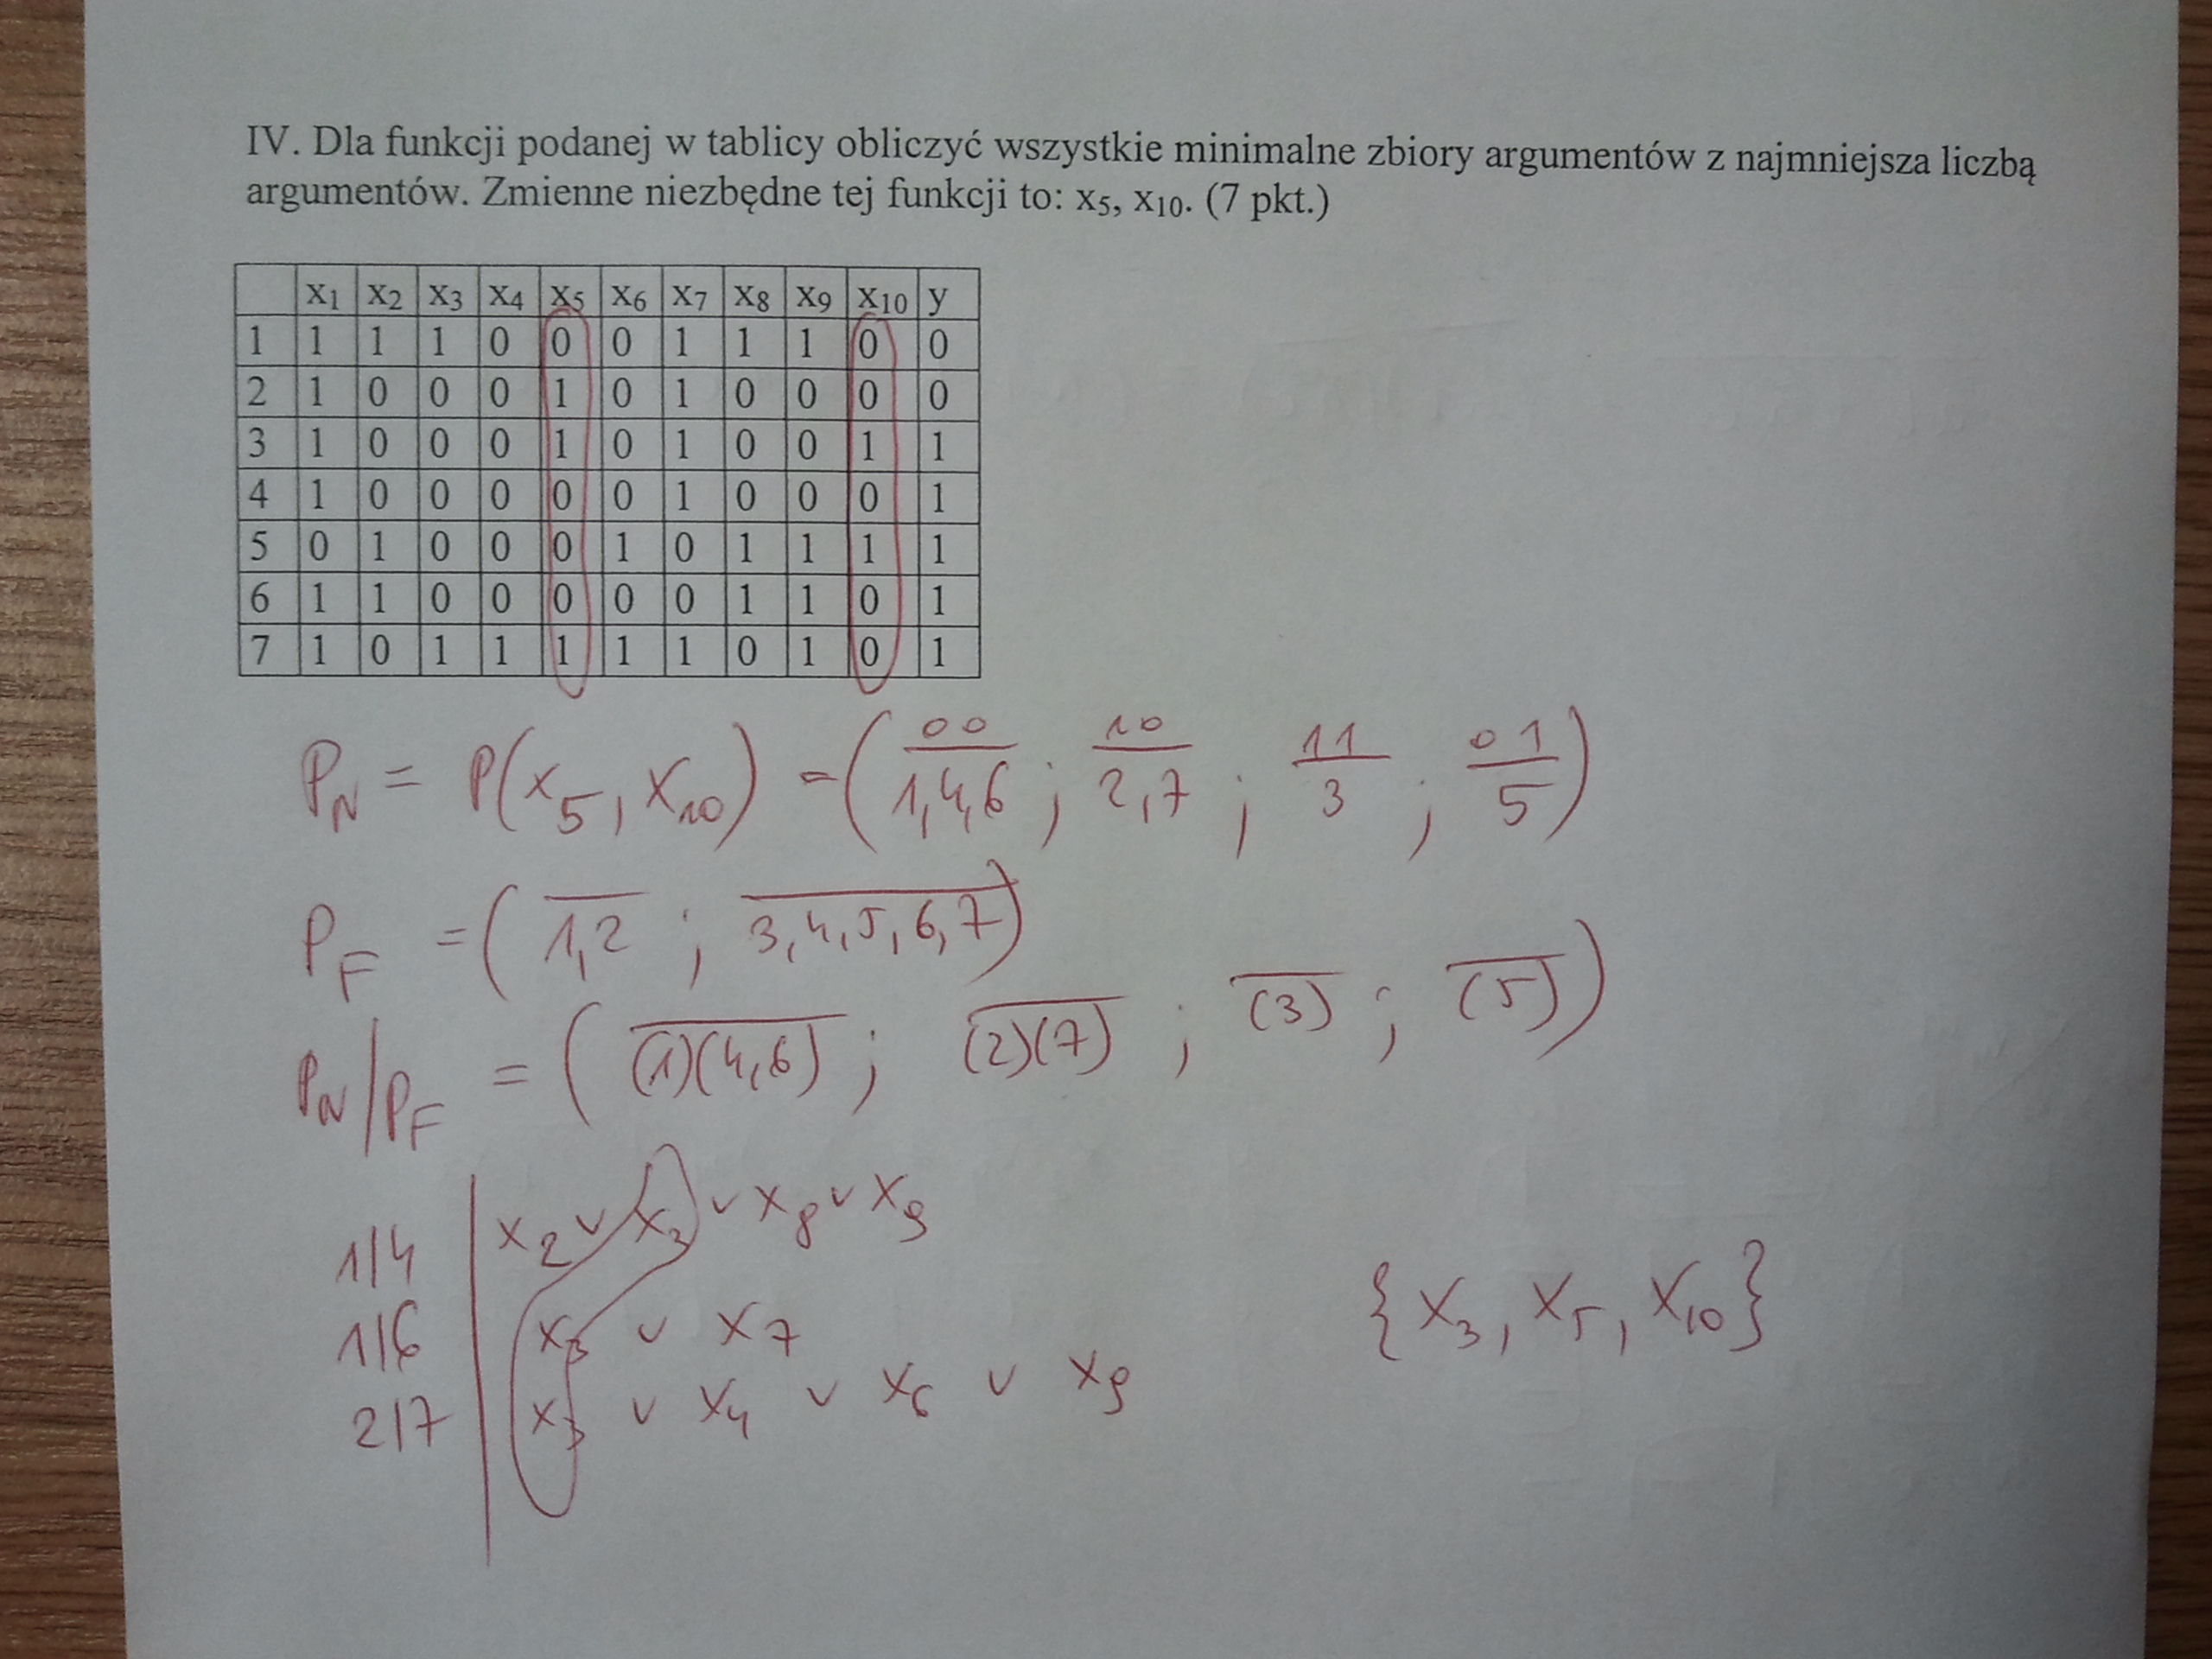 IV. Dla funkcji podanej w tablicy obliczyć wszystkie minimalne zbiory argumentów z najmniejsza liczbą
argumentów. Zmienne niezbędne tej funkcji to: x5, x10. (7 pkt.)
x1 x2 x3 x4 x5 x6 x7 x8 x9 x10 y
1 1 1 1 0 0 0 1 1 1 0 0
2 1 0 0 0 1 0 1 0 0 0 0
3 1 0 0 0 1 0 1 0 0 1 1
4 1 0 0 0 0 0 1 0 0 0 1
5 0 1 0 0 0 1 0 1 1 1 1
6 1 1 0 0 0 0 0 1 1 0 1
7 1 0 1 1 1 1 1 0 1 0 1
00 10 11 01
PN = P(x5, x10) = (1,4,6 ; 2,7 ; 3 ; 5)
PF = (1,2 ; 3,4,5,6,7)
PN|PF = ((1)(4,6) ; (2)(7) ; (3) ; (5))
1|4 x2 v x3 v x8 v x9
1|6 x3 v x7 {x3, x5, x10}
2|7 x3 v x4 v x6 v x9